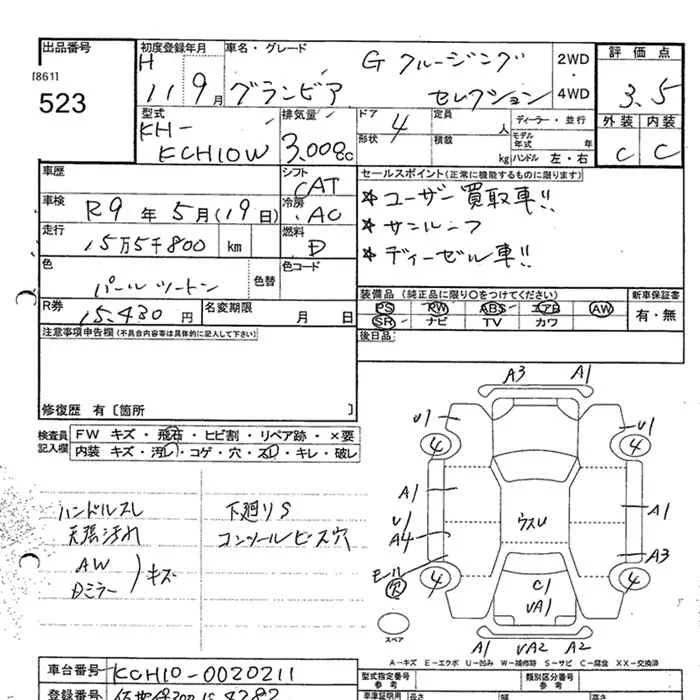 出品番号
[861]
523
初度登録年月
H
11 9月
車名・グレード
G クルージング
グランビア
セレクション
2WD
・
4WD
評価点
3.5
外装 内装
C C
型式
KH-
KCH10W
排気量
3,000cc
ドア
4
形状
定員
人
積載
kg
ディーラー・並行
モデル
年式 年
ハンドル 左・右
車歴
車検
R9年5月(19日)
走行
15万5千800 km
色
パールツートン
色替
シフト
CAT
冷房
AC
燃料
D
色コード
セールスポイント(正常に機能するものに限ります)
★ユーザー買取車!!
★サンルーフ
★ディーゼル車!!
R券
15,430円
名変期限
月 日
装備品 (純正品に限り○をつけてください)
PS PW ABS エアB AW
SR ナビ TV カワ
新車保証書
有・無
後日品
注意事項申告欄(不具合内容等は具体的に記入して下さい)
修復歴 有 [箇所 ]
検査員
記入欄
FW キズ・飛石・ヒビ割・リペア跡・×要
内装 キズ・汚レ・コゲ・穴・スレ・キレ・破レ
ハンドルスレ
天張汚れ
AW
Dミラー
キズ
下廻りS
コンソールビス穴
A3 A1
U1 U1
4 4
A1 A1
U1
A4
ウスU
A3
モール
穴
4 4
C1
UA1
スペア
A1 UA2 A2
A-キズ E-エクボ U-凹み W-補修跡 S-サビ C-腐食 XX-交換済
車台番号
KCH10-0020211
登録番号
型式指定番号
参考
類別区分番号
参考
車体登録
長さ
幅
高さ